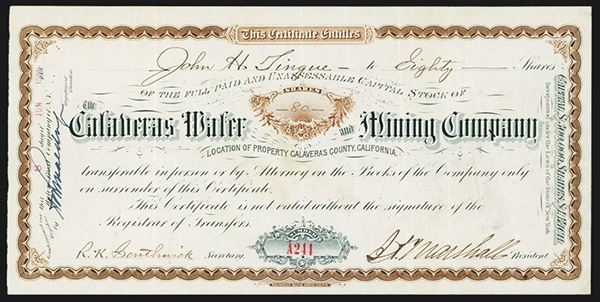 This Certificate Entitles
John H. Tingue to Eighty Shares
OF THE FULL PAID AND UNASSESSABLE CAPITAL STOCK OF
SHARES
80
The Calaveras Water and Mining Company
LOCATION OF PROPERTY CALAVERAS COUNTY, CALIFORNIA.
transferable in person or by Attorney on the Books of the Company only
on surrender of this Certificate.
This Certificate is not valid without the signature of the
Registrar of Transfers.
NUMBER
A244
R. K. Southwick Secretary. President